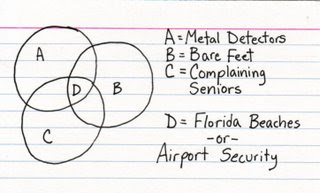 A
B
D
C
A = Metal Detectors
B = Bare Feet
C = Complaining
Seniors
D = Florida Beaches
-or-
Airport Security